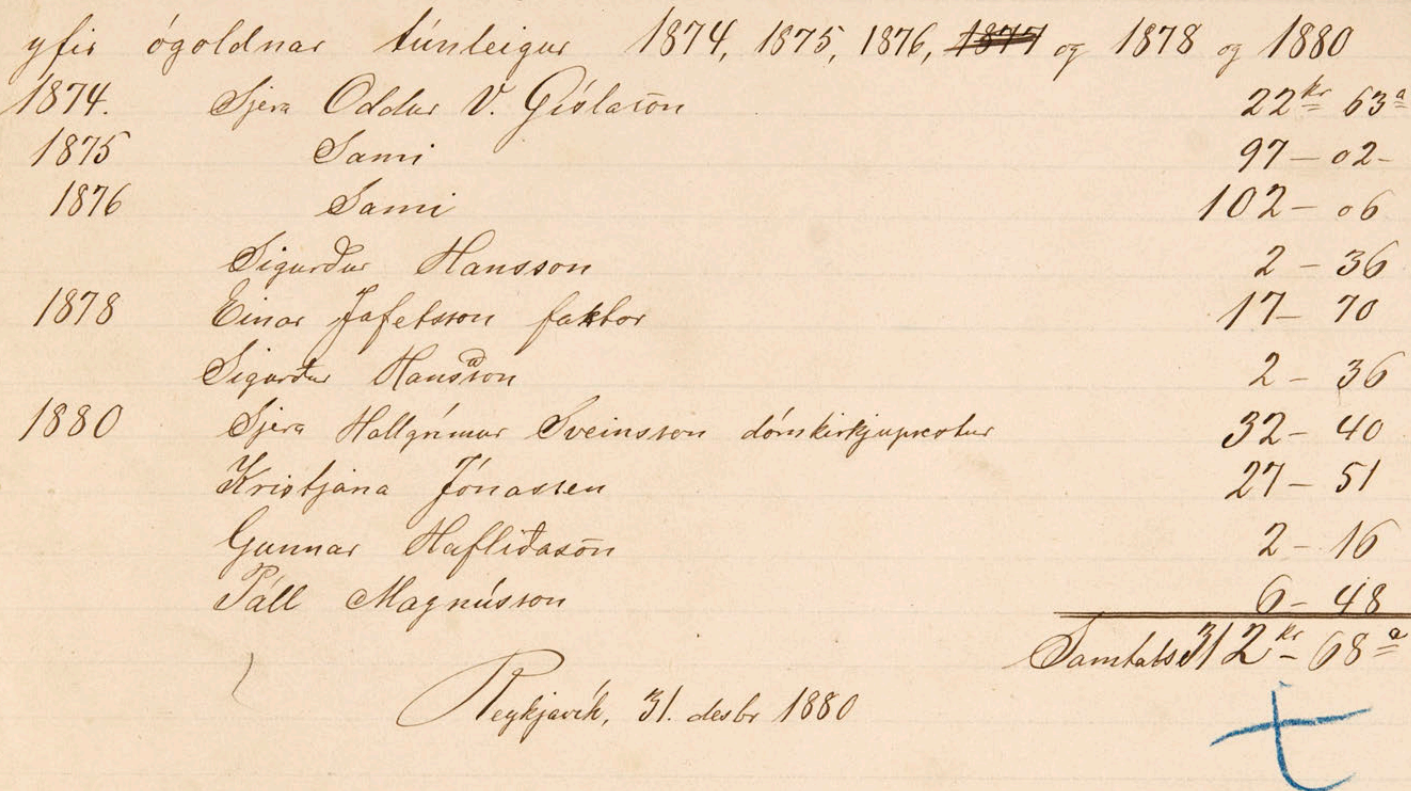 yfir ógoldnar túnleigur 1874, 1875, 1876, 1877 og 1878 og 1880
1874. Sjera Oddur V. Gíslason 22 kr 63 a
1875 Sami 97 — 02 -
1876 Sami 102 — 06
Sigurður Hansson 2 — 36
1878 Einar Jafetsson faktor 17 — 70
Sigurður Hansson 2 — 36
1880 Sjera Hallgrímur Sveinsson dómkirkjuprestur 32 — 40
Kristjana Jónassen 27 — 51
Gunnar Hafliðason 2 — 16
Páll Magnússon 6 — 48
Samtals 312 kr — 68 a
Reykjavík, 31. desbr 1880